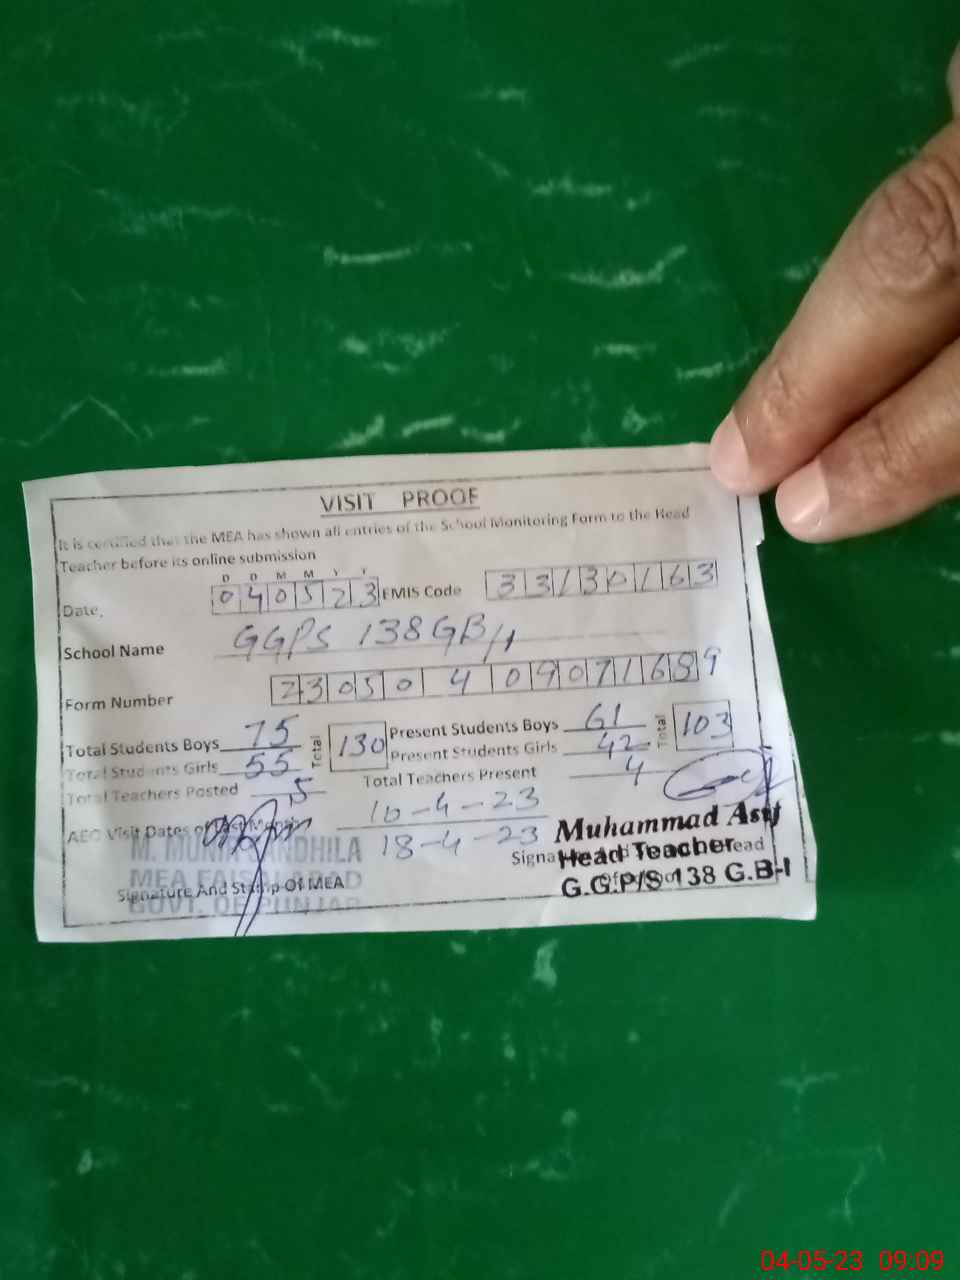 VISIT PROOF
It is certified that the MEA has shown all entries of the School Monitoring Form to the Head
Teacher before its online submission
D D M M Y Y
Date, 040523 EMIS Code 33130163
School Name GGPS 138GB/1
Form Number 23050409071689 9
Total Students Boys 75 Total 130 Present Students Boys 61 Total 103
Total Students Girls 55 Present Students Girls 42
Total Teachers Posted 5 Total Teachers Present 4
AEO Visit Dates of Last Month 10-4-23
18-4-23
M. MUNIR SANDHILA
MEA FAISALABAD
GOVT. OF PUNJAB
Signature And Stamp Of MEA
Muhammad Asif
Head Teacher
G.G.P/S 138 G.B-I
04-05-23 09:09